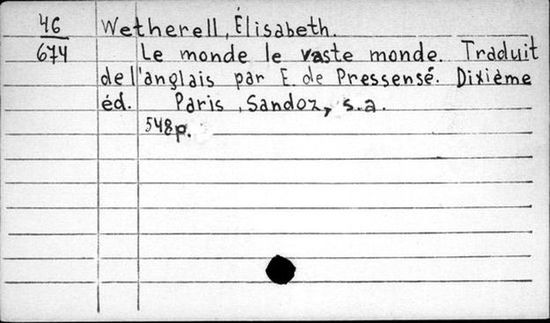 46 Wetherell, Élisabeth.
674 Le monde le vaste monde. Traduit
de l'anglais par E. de Pressensé. Dixième
éd. Paris, Sandoz, s.a.
548p.